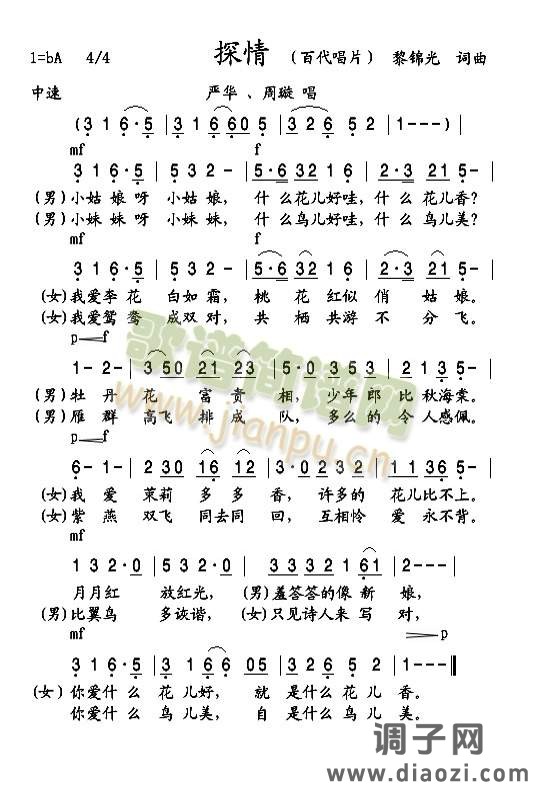 1=bA 4/4 探情 （百代唱片） 黎锦光 词曲
中速 严华、周璇 唱
(3 1 6·5 | 3 1 6 6 0 5 | 3 2 6 5 2 | 1 - - - )
mf f
3 1 6·5 | 5 3 2 - | 5·6 3 2 1 6 | 2·3 2 1 5 - |
(男)小姑娘呀 小姑娘， 什么花儿好哇，什么花儿香？
(男)小妹妹呀 小妹妹， 什么鸟儿好哇，什么鸟儿美？
mf f
3 1 6·5 | 5 3 2 - | 5·6 3 2 1 6 | 2·3 2 1 5 - |
(女)我爱李花 白如霜， 桃花红似俏姑娘。
(女)我爱鸳鸯 成双对， 共栖共游不分飞。
p f
1 - 2 - | 3 5 0 2 1 2 3 | 5 - - 0 | 3 5 3 | 2 1 3 5 - |
(男)牡丹花 富贵相，少年郎比秋海棠。
(男)雁群高飞排成队，多么的令人感佩。
p f
6 - 1 - | 2 3 0 1 6 1 2 | 3·0 2 3 2 | 1 1 3 6 5 - |
(女)我爱茉莉多多香，许多的花儿比不上。
(女)紫燕双飞同去同回，互相怜爱永不背。
mf
1 3 2·0 | 5 3 2·0 | 3 3 3 2 6 1 | 2 - - - |
月月红 放红光， (男)羞答答的像新娘，
(男)比翼鸟 多诙谐， (女)只见诗人来写对，
mf p
3 1 6·5 | 3 1 6 6 0 5 | 3 2 6 5 2 | 1 - - - ‖
(女)你爱什么花儿好， 就是什么花儿香。
你爱什么鸟儿美， 自是什么鸟儿美。
歌谱简谱网
www.jianpu.cn
调子网
www.diaozi.com